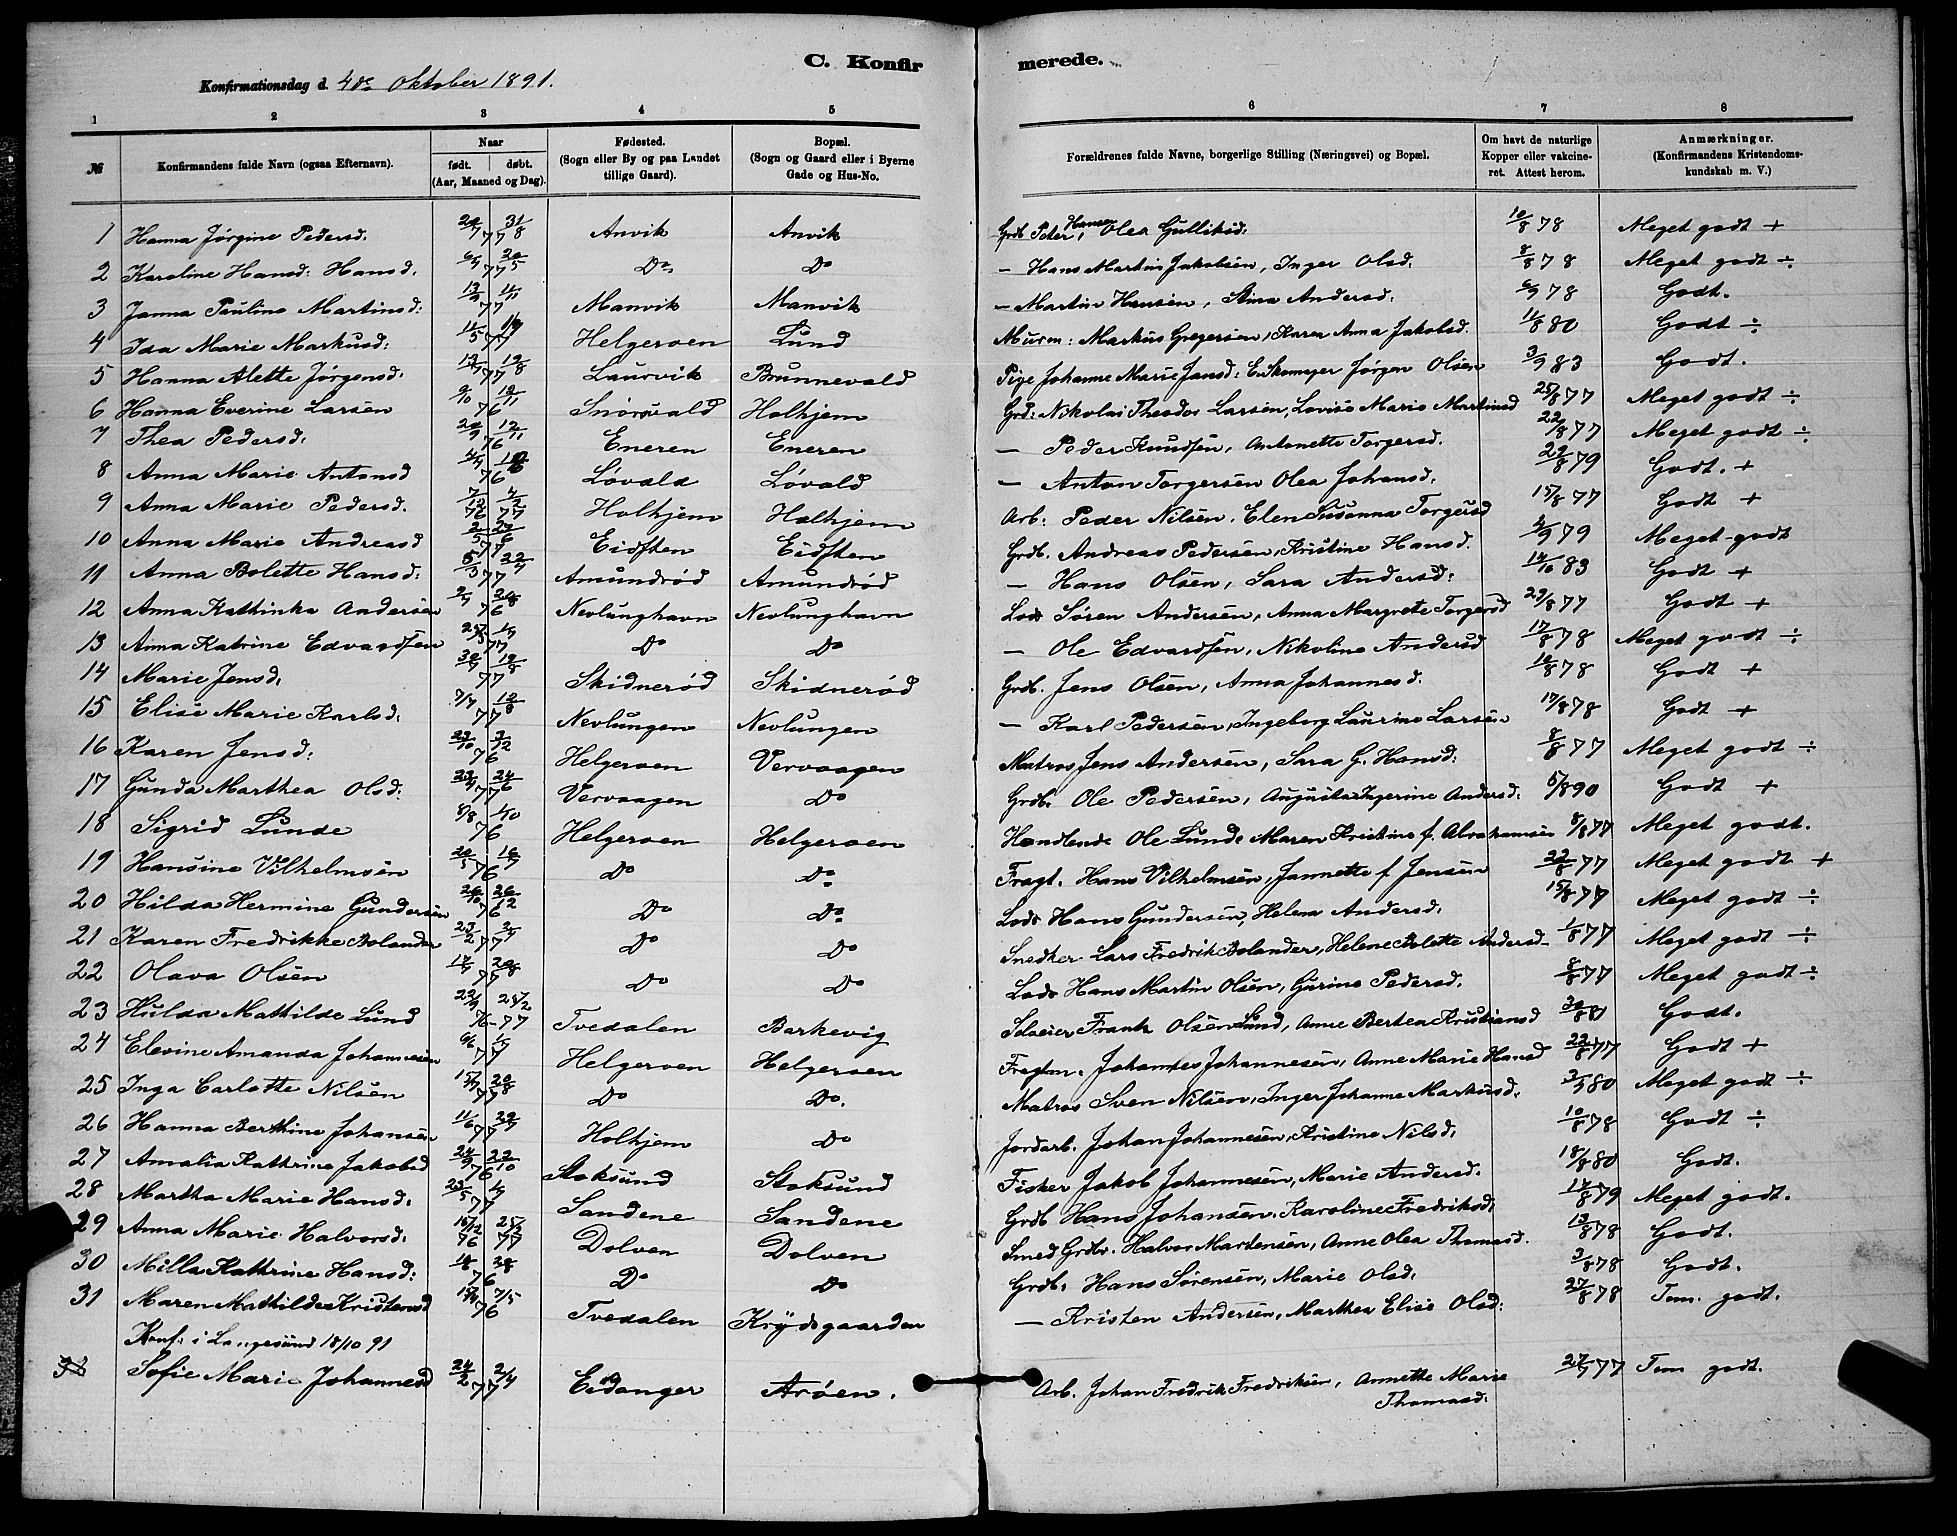 C. Konfirmerede.
Konfirmationsdag d. 4de Oktober 1891.
1 2 3 4 5 6 7 8
№ Konfirmandens fulde Navn (ogsaa Efternavn). Naar født. døbt. (Aar, Maaned og Dag). Fødested. (Sogn eller By og paa Landet tillige Gaard). Bopæl. (Sogn og Gaard eller i Byerne Gade og Hus-No. Forældrenes fulde Navne, borgerlige Stilling (Næringsvei) og Bopæl. Om havt de naturlige Kopper eller vakcineret. Attest herom. Anmærkninger. (Konfirmandens Kristendomskundskab m. V.)
1 Hanna Jørgine Pedersd. 31/8 77 Anvik Anvik Grdb. Peter Hansen, Olea Gulliksd. 10/8 78 Meget godt +
2 Karoline Hansd: Hansd. 77 Do Do — Hans Martin Jakobsen, Inger Olsd. 8/8 78 Meget godt ÷
3 Janna Pauline Martinsd: 77 Manvik Manvik — Martin Hansen, Stina Andersd. 6/9 78 Godt.
4 Ida Marie Markusd: 77 Helgeroen Lund Murm: Markus Gregersen, Karen Anna Jakobsd. 11/8 80 Godt ÷
5 Hanna Alette Jørgensd. 12/8 77 Laurvik Brunnevald Pige Johanne Marie Jansd: Enkem Jørgen Olsen 3/9 83 Godt.
6 Hanna Everine Larsen 9/10 12/11 76 Holhjem Grd: Nikolai Theodor Larsen, Lovise Marie Martinsd 25/8 77 Meget godt ÷
7 Thea Pedersd: 20/9 12/11 76 Eneren Eneren — Peder Knudsen, Antonette Torgersd. 22/8 77 Meget godt ÷
8 Anna Marie Antonsd 76 Løvald Løvald — Anton Torgersen Olea Johansd. 22/8 79 Godt. +
9 Anna Marie Pedersd. 7/12 76 4/2 77 Holhjem Holhjem Arb: Peder Nilsen, Elen Susanna Torgersd 15/8 77 Godt +
10 Anna Marie Andreasd 2/5 24/6 77 Eidsten Eidsten Grdb. Andreas Pedersen, Kristine Hansd. 79 Meget godt
11 Anna Bolette Hansd: 5/3 22/4 77 Amundrød Amundrød — Hans Olsen, Sara Andersd: 14/10 83 Godt +
12 Anna Kathinka Andersen 76 Nevlunghavn Nevlunghavn Lods Søren Andersen, Anna Margrete Torgersd 23/8 77 Godt +
13 Anna Katrine Edvardsen 77 Do Do — Ole Edvardsen, Nikoline Andersd 17/8 78 Meget godt ÷
14 Marie Jensd. 77 Skidnerød Skidnerød Grdb. Jens Olsen, Anna Johannesd. 10/8 78 Godt +
15 Elise Marie Karlsd. 7/7 12/8 77 Nevlungen Nevlungen — Karl Pedersen, Ingeborg Laurine Larsen 17/8 78 Godt +
16 Karen Jensd: 23/10 3/12 76 Helgeroen Vervaagen Matros Jens Andersen, Sara G. Hansd: 8/8 77 Meget godt ÷
17 Gunda Marthea Olsd: 24/6 77 Vervaagen Do Grdb. Ole Pedersen, Augusta Ingerine Andersd. 5/8 90 Godt +
18 Sigrid Lunde 8/8 1/10 76 Helgeroen Helgeroen Handlende Ole Lunde Maren Kristine f. Abrahamsen 8/8 77 Meget godt.
19 Hansine Vilhelmsen 20/5 16/7 76 Do Do Fragt. Hans Vilhelmsen, Jannette f Jensen 22/8 77 Meget godt +
20 Hilda Hermine Gundersen 26/10 26/12 76 Do Do Lods Hans Gundersen, Helene Andersd. 15/8 77 Meget godt ÷
21 Karen Fredrikke Bolander 23/2 2/4 77 Do Do Snedker Lars Fredrik Bolander, Helene Bolette Andersd 1/8 77 Meget godt ÷
22 Olava Olsen 77 Do Do Lods Hans Martin Olsen, Gurine Pedersd. 8/8 77 Meget godt ÷
23 Hulda Mathilde Lund 22/9 25/2 76-77 Tvedalen Barkevig Frantz Olsen Lund, Anne Bertea Kristiansd Godt.
24 Elevine Amanda Johannesen 6/6 77 Helgeroen Helgeroen Fragtm. Johannes Johannesen, Anne Marie Hansd 22/8 77 Godt +
25 Inga Carlotte Nilsen 77 Do Do. Matros Sven Nilsen, Inger Johanne Markusd. 80 Meget godt ÷
26 Hanna Berthine Johansen 11/6 77 Holhjem Do Jordarb. Johan Johannesen, Kristine Nilsd. 10/8 78 Godt ÷
27 Amalia Kathrine Jakobsd 24/9 22/10 76 Stoksund Stoksund Fisker Jakob Johannesen, Marie Andersd. 18/8 80 Godt.
28 Martha Marie Hansd. 23/5 77 Sandene Sandene Grdb Hans Johansen, Karoline Fredriksd. 14/8 79 Meget godt.
29 Anna Marie Halvorsd. 16/12 76 25/2 77 Dolven Dolven Smed Grdbr. Halvor Martensen, Anne Olea Thomasd. 13/8 78 Godt.
30 Milla Kathrine Hansd: 76 Do Do Grdb. Hans Sørensen, Marie Olsd. 3/8 78 Godt.
31 Maren Mathilde Kristensd 7/5 76 Tvedalen Krydsgaarden — Kristen Andersen, Marthea Elise Olsd: 27/8 78 Tem. godt.
Konf: i Langesund 18/10 91
32 Sofie Marie Johannesd 24/2 2/4 77 Eidanger Arøen. Arb. Johan Fredrik Fredriksen, Annette Marie 77 Tem godt.
Thomasd.